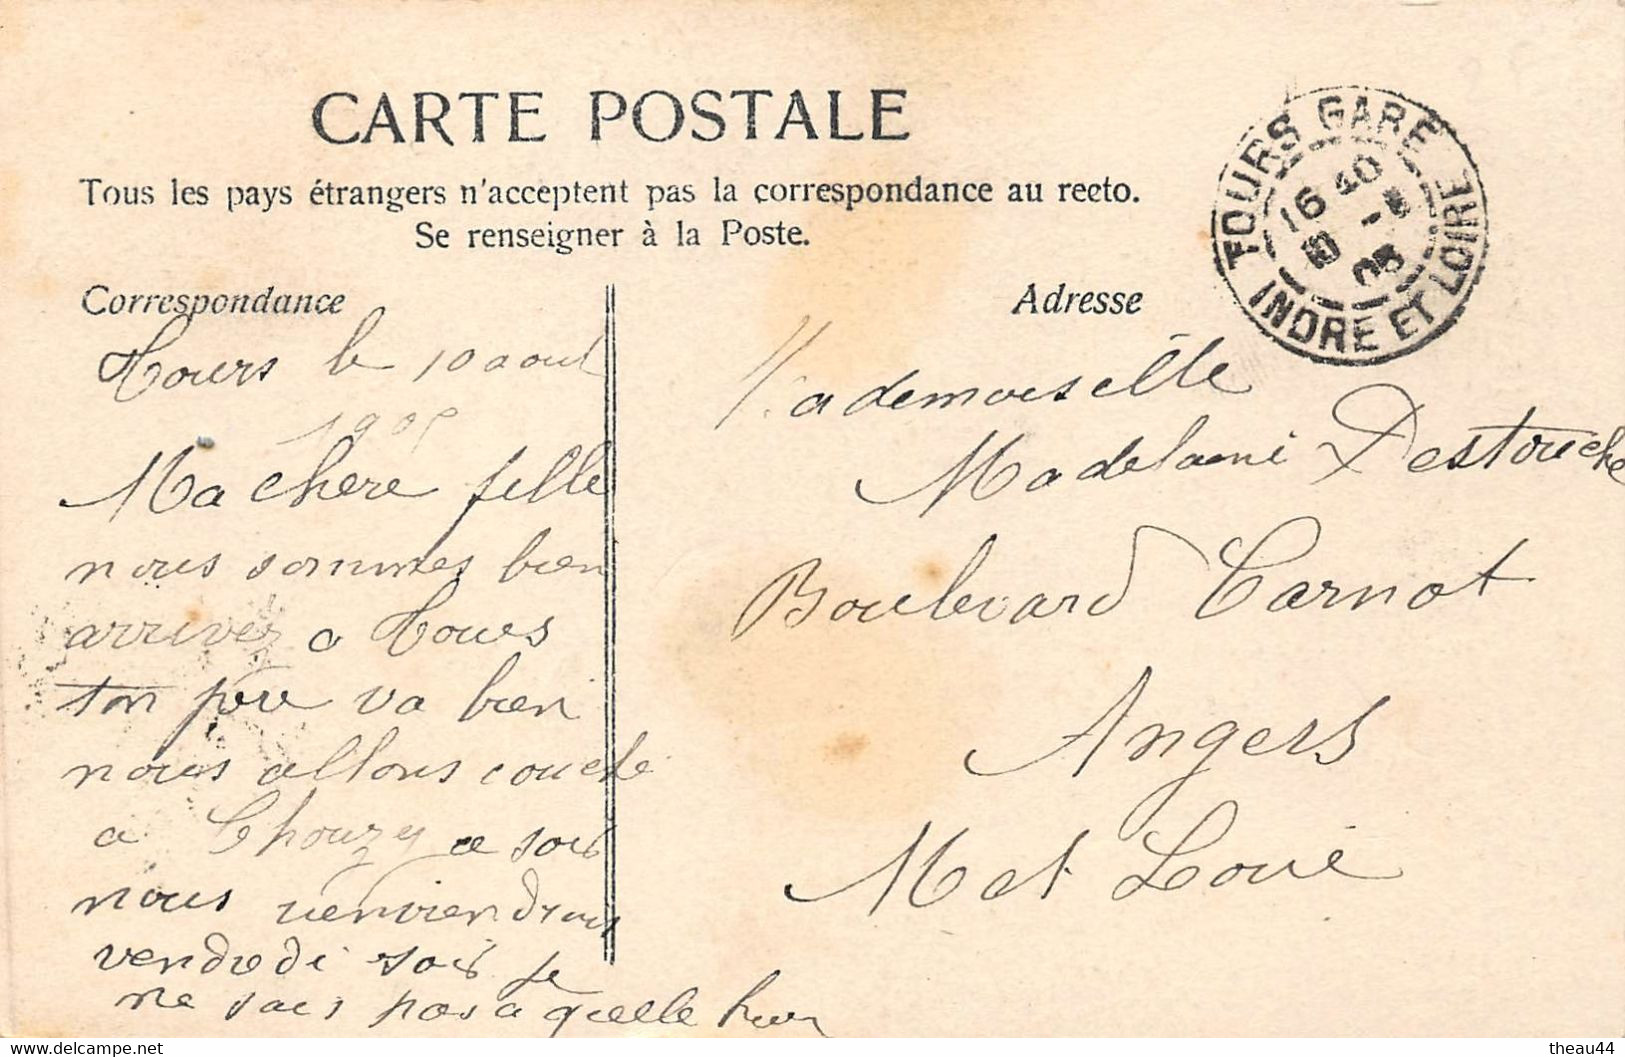 CARTE POSTALE
Tous les pays étrangers n'acceptent pas la correspondance au recto.
Se renseigner à la Poste.
Correspondance
Tours le 10 aout
1905
Ma chere fille
nous sommes bien
arrivez a Tours
ton père va bien
nous allons couche
a Chouzy ce soir
nous
vendredi soir je
ne sais pas a quelle heur
Adresse
TOURS GARE
16 40
INDRE ET LOIRE
Mademoiselle
Destouche
Boulevard Carnot
Angers
M et Loire
theau44